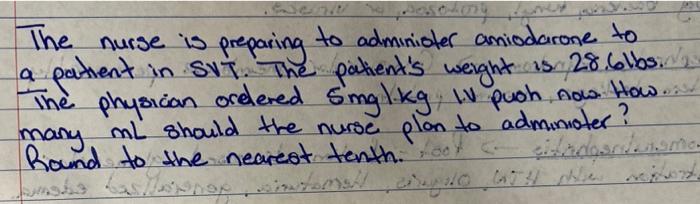 The nurse is preparing to administer amiodarone to
a patient in SVT. The patient's weight is 28.6lbs.
The physician ordered 5mg/kg IV push now. How
many mL should the nurse plan to administer?
Round to the nearest tenth.